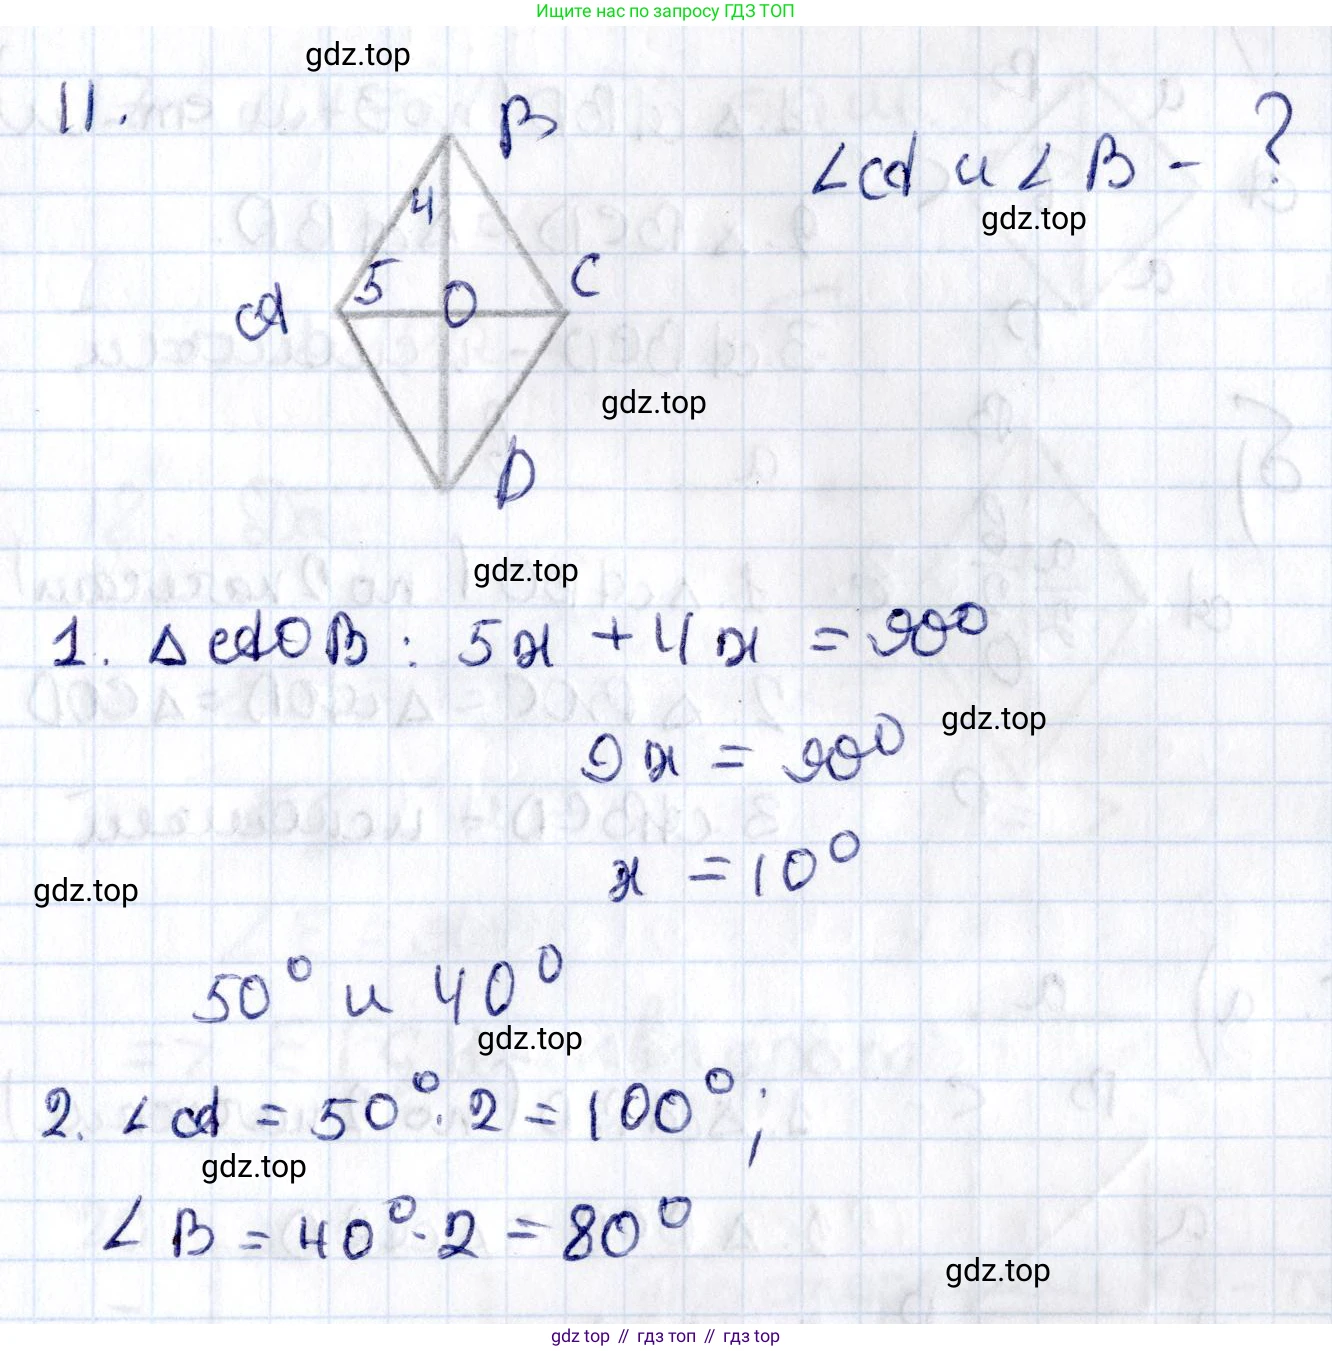 Ищите нас по запросу ГДЗ ТОП
gdz.top
11.
B
∠A и ∠B - ?
gdz.top
4
5
O
C
A
gdz.top
D
gdz.top
1. △AOB: 5x + 4x = 90°
gdz.top
9x = 90°
x = 10°
gdz.top
50° и 40°
gdz.top
2. ∠A = 50° · 2 = 100°;
gdz.top
∠B = 40° · 2 = 80°
gdz.top
gdz top // гдз топ // gdz top